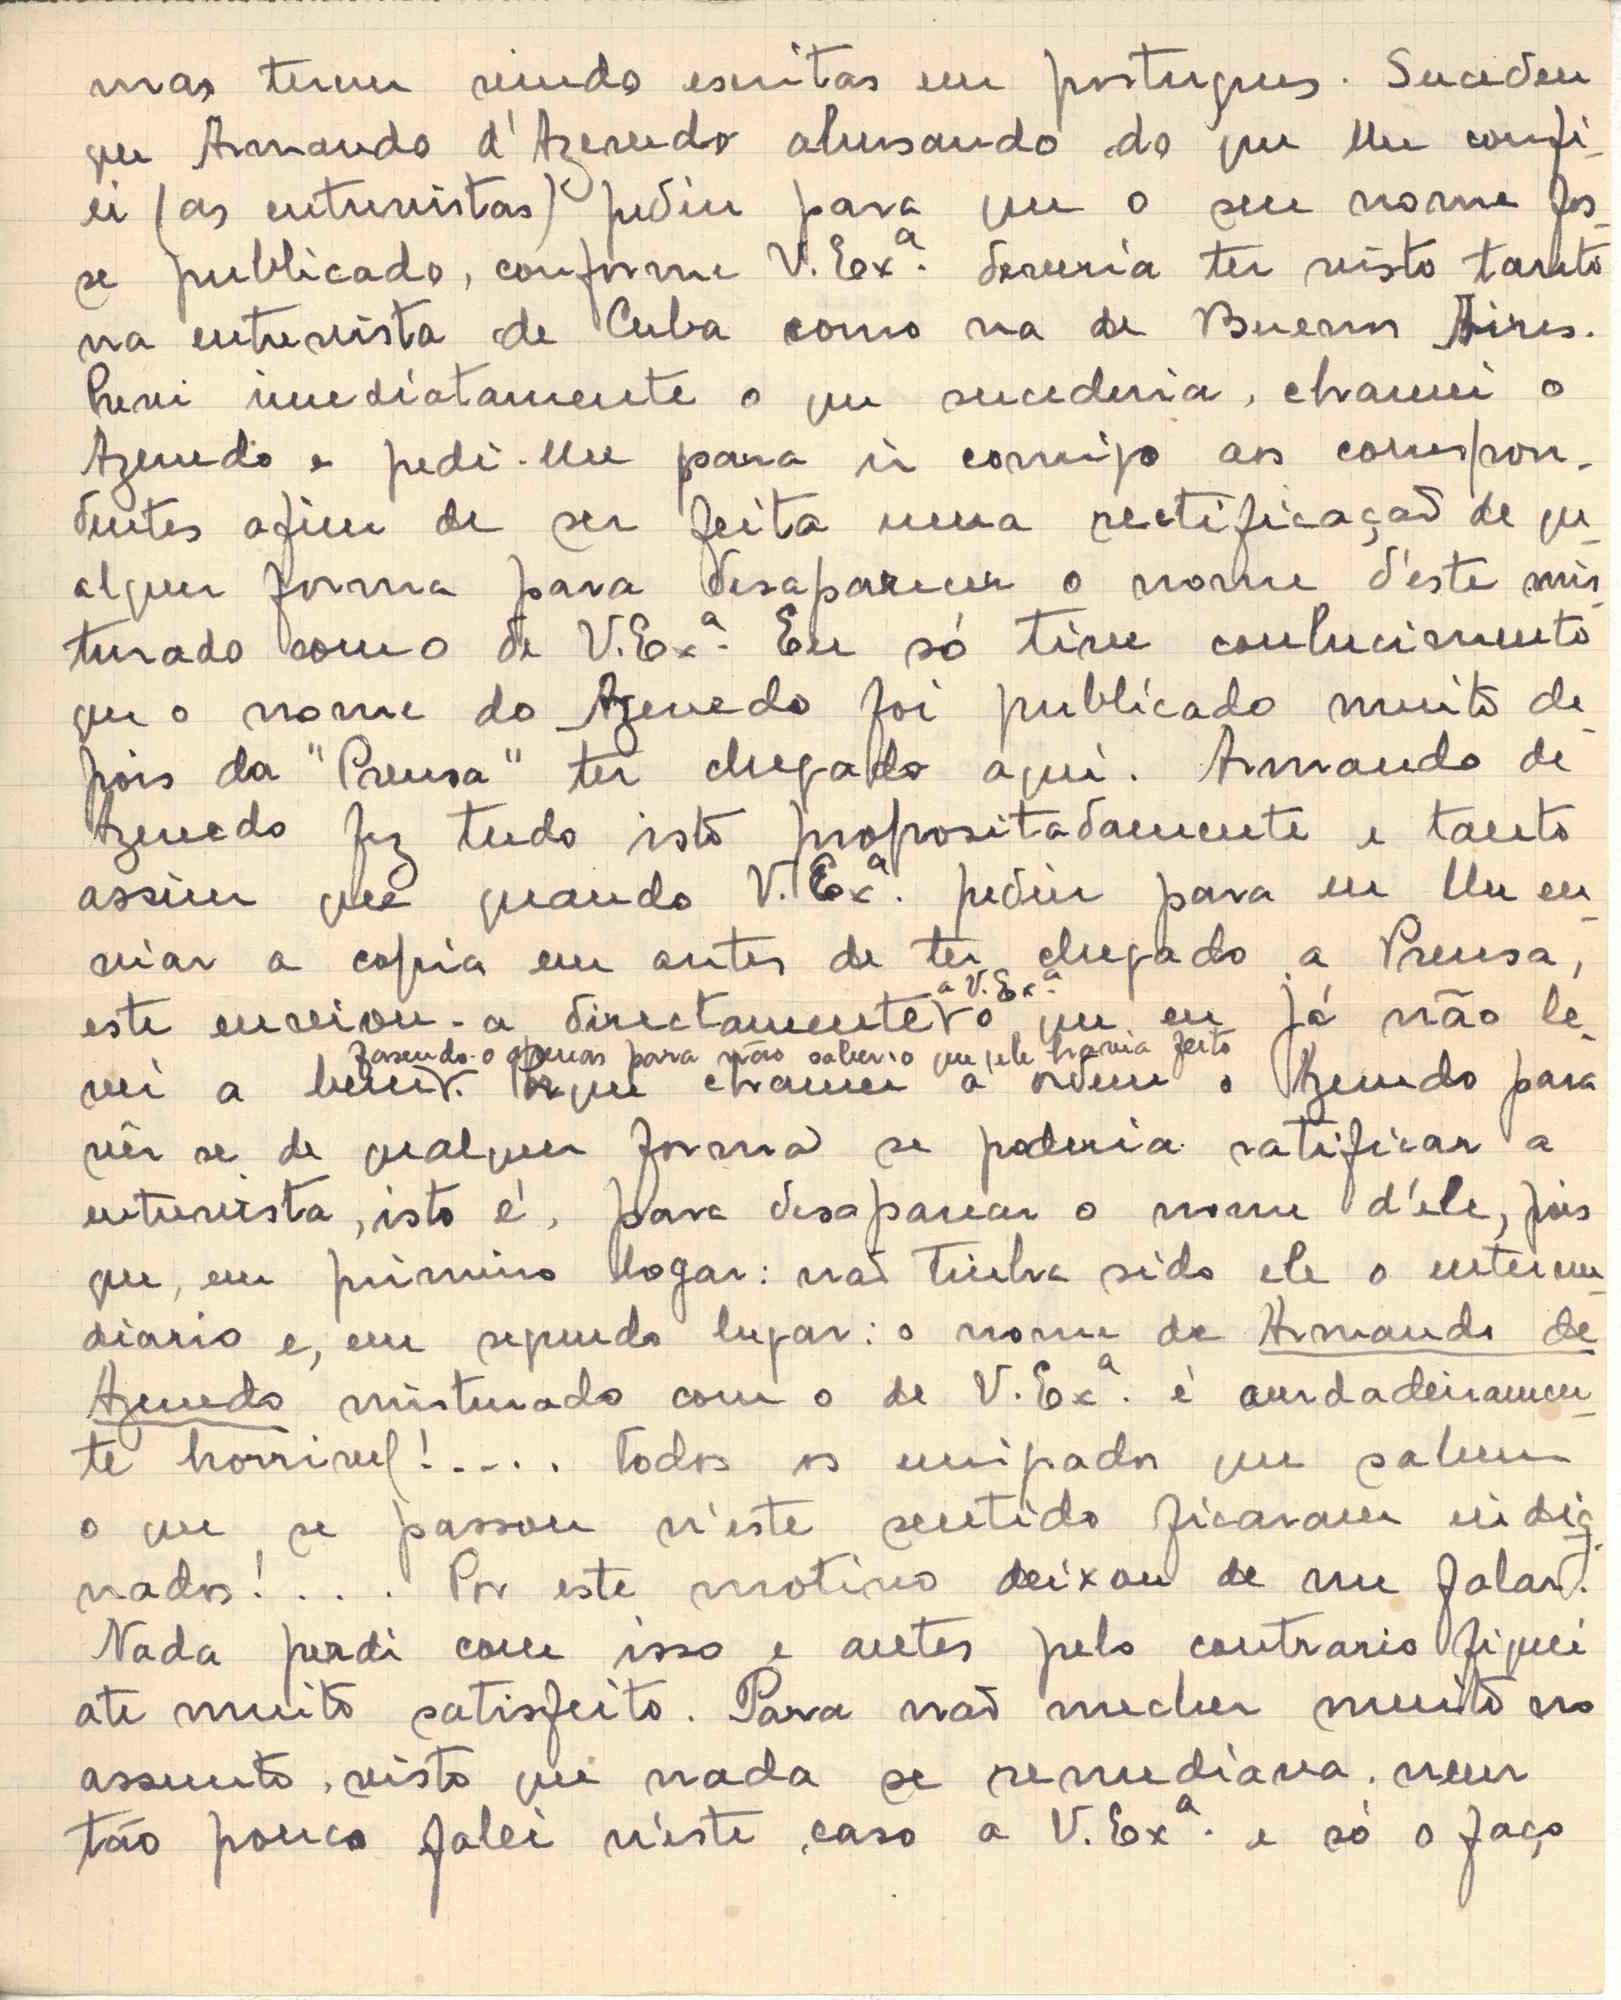 mas terem sindo escritas em portugues. Sucedeu
que Armando d'Azevedo abusando do que lhe confi-
ei (as entrevistas) pediu para que o seu nome fos-
se publicado, conforme V. Exª. deveria ter visto tanto
na entrevista de Cuba como na de Buenos Aires.
Previ imediatamente o que sucederia, chamei o
Azevedo e pedi-lhe para ir comigo aos correspon-
dentes afim de ser feita uma rectificaçaõ de qu-
alquer forma para desaparecer o nome d'este mis-
turado com o de V. Exª. Eu só tive conhecimento
que o nome do Azevedo foi publicado muito de-
pois da "Prensa" ter chegado aqui. Armando de
Azevedo fez tudo isto propositadamente e tanto
assim que quando V. Exª. pediu para eu lhe en-
viar a copia em antes de ter chegado a Prensa,
este enviou-a directamente a V. Exª. o que eu já não le-
vei a bem fasendo-o apenas para não saber o que ele havia feito. Porque chamei a ordem o Azevedo para
vêr se de qualquer forma se poderia ratificar a
entrevista, isto é, para desaparecer o nome d'éle, pois
que, em primeiro logar: naõ tinha sido ele o interme-
diario e, em segundo lugar: o nome de Armando de
Azevedo misturado com o de V. Exª. é verdadeiramen-
te horrivel!..... Todos os emigrados que sabem
o que se passou n'este sentido ficaram indig-
nados!.... Por este motivo deixou de me falar.
Nada perdi com isso e antes pelo contrario fiquei
ate muito satisfeito. Para naõ mecher muito no
assunto, visto que nada se remediava, nem
tão pouco falei n'este caso a V. Exª. e só o faço